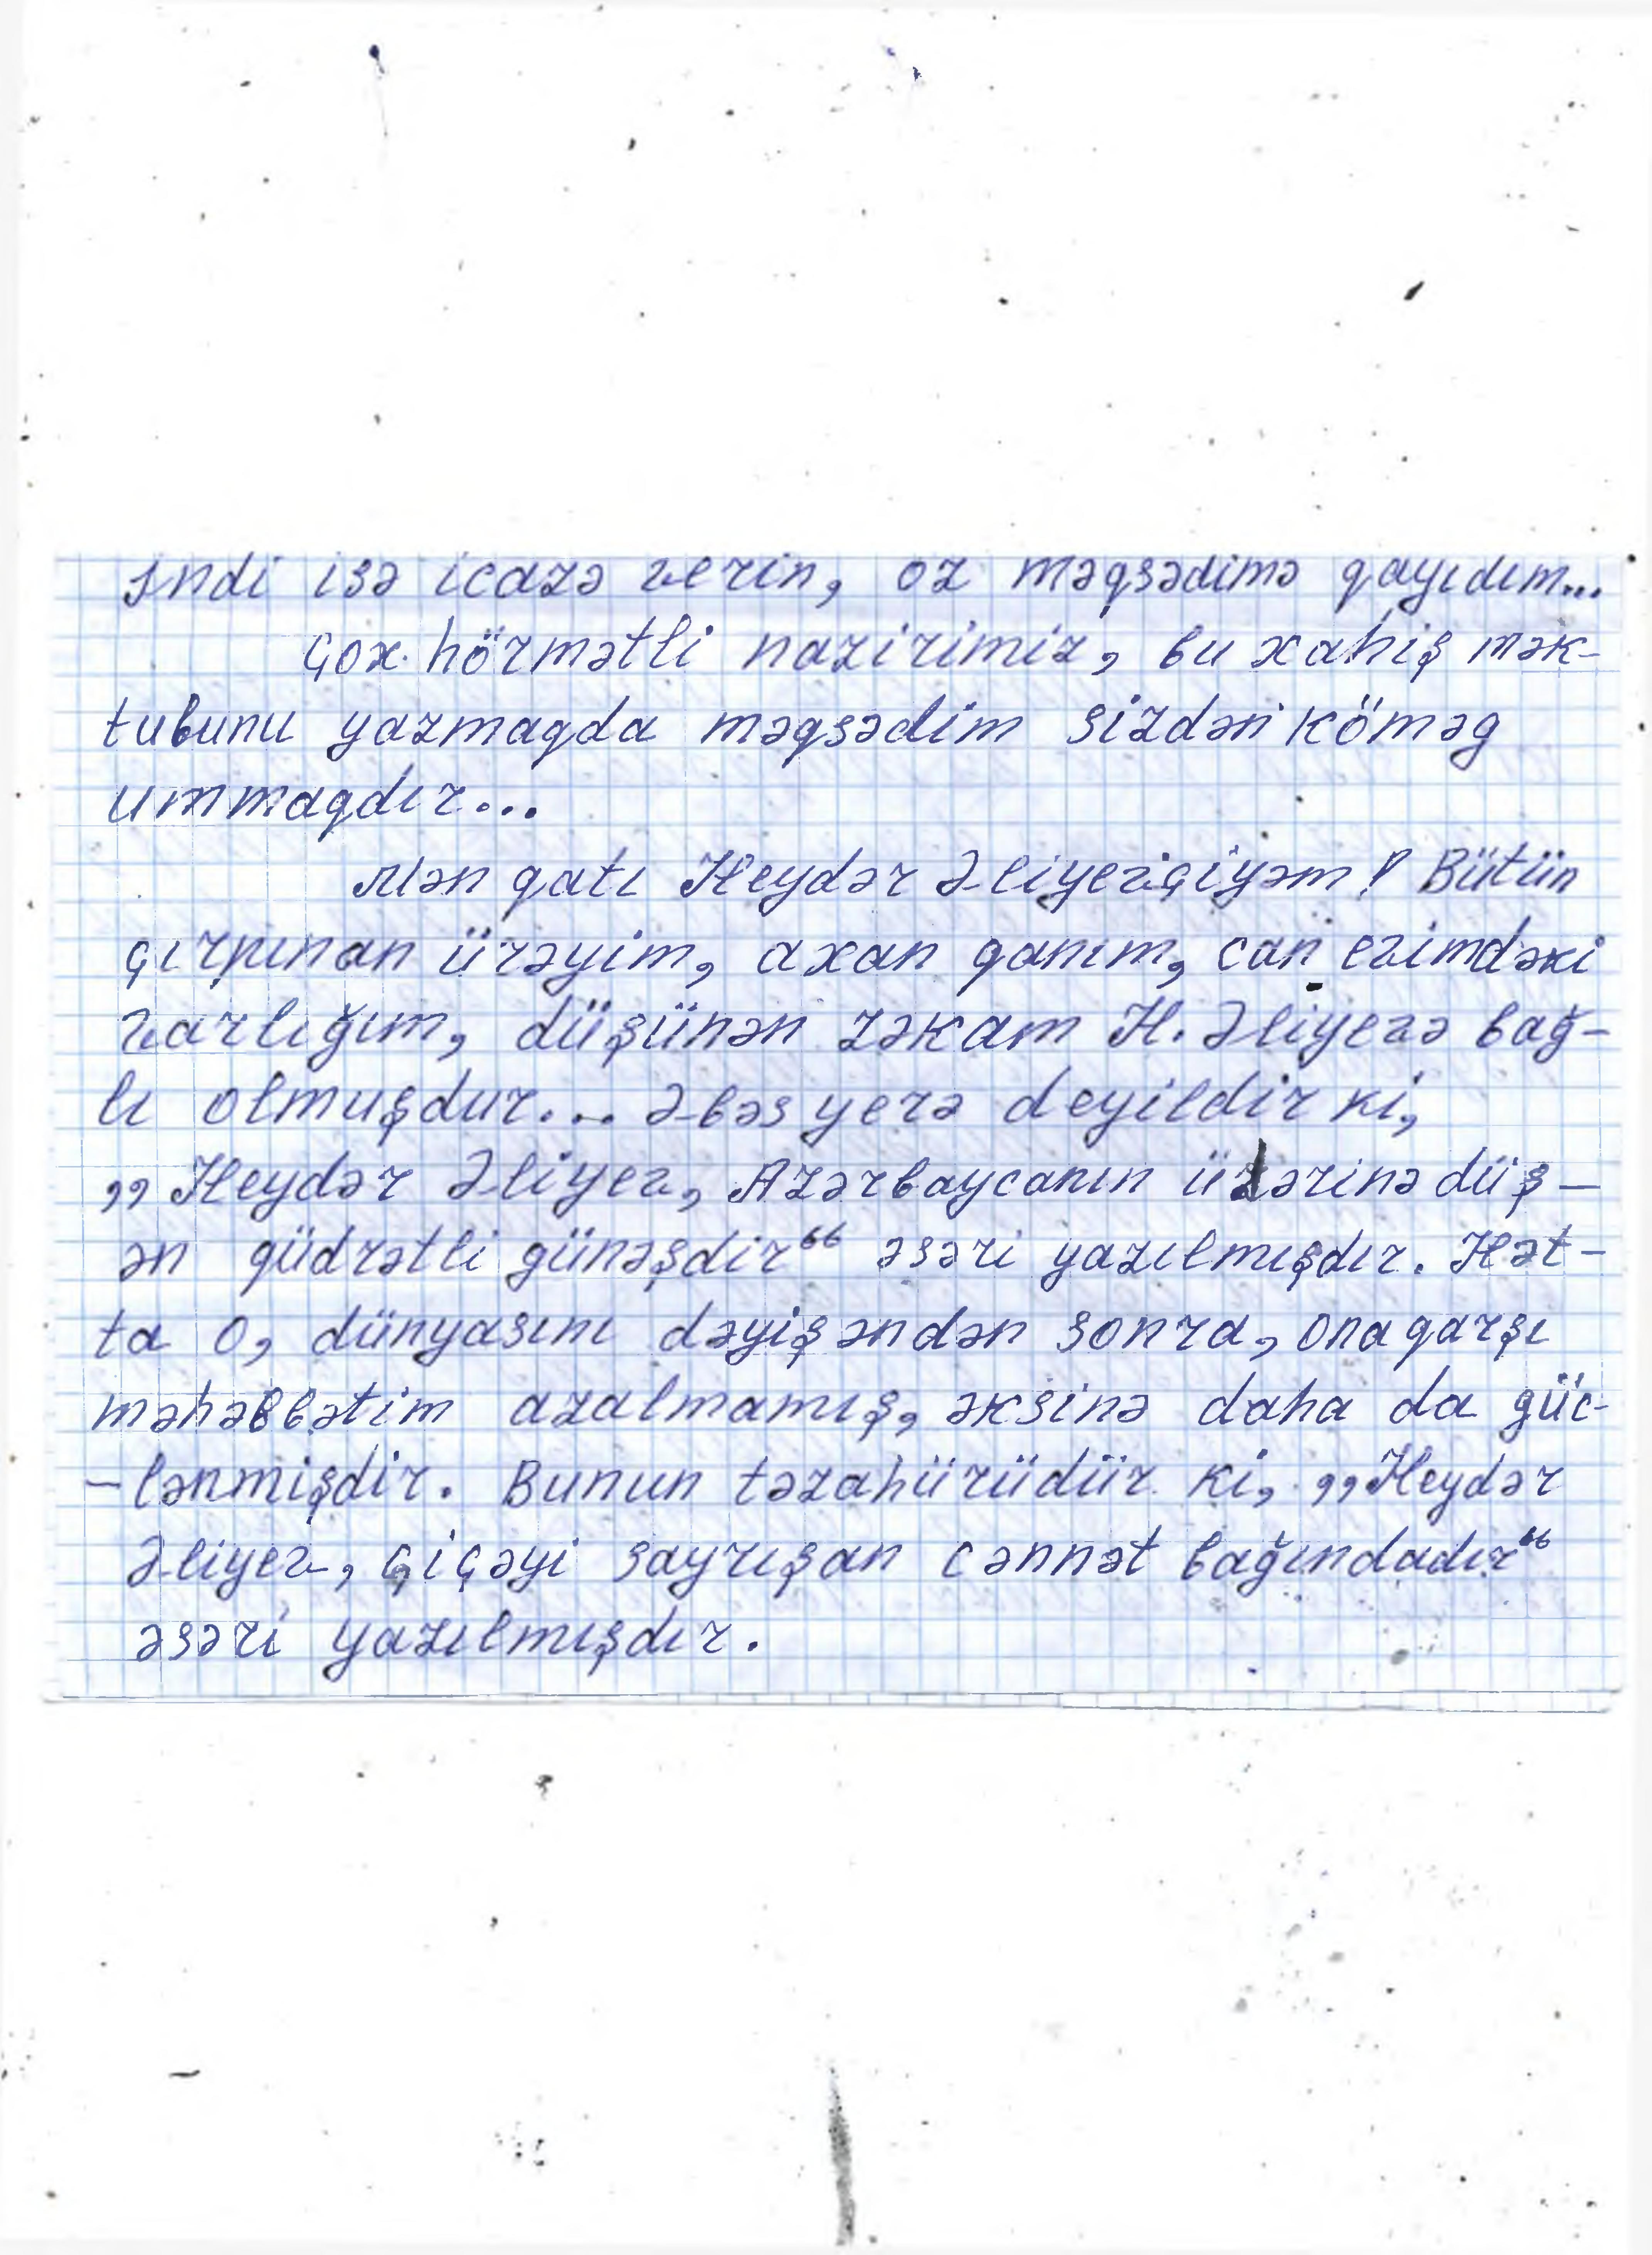 İndi isə icazə verin, öz məqsədimə qayıdım...
Çox hörmətli nazirimiz, bu xahiş mək-
tubunu yazmaqda məqsədim sizdən köməg
ummaqdır...
Mən qatı Heydər Əliyevçiyəm! Bütün
çırpınan ürəyim, axan qanım, can evimdəki
varlığım, düşünən zəkam H. Əliyevə bağ-
lı olmuşdur... Əbəs yerə deyildir ki,
,,Heydər Əliyev, Azərbaycanın üzərinə düş-
ən qüdrətli günəşdir“ əsəri yazılmışdır. Hət-
ta o, dünyasını dəyişəndən sonra, ona qarşı
məhəbbətim azalmamış, əksinə daha da güc-
-lənmişdir. Bunun təzahürüdür ki, ,,Heydər
Əliyev, çiçəyi sayrışan cənnət bağındadır“
əsəri yazılmışdır.